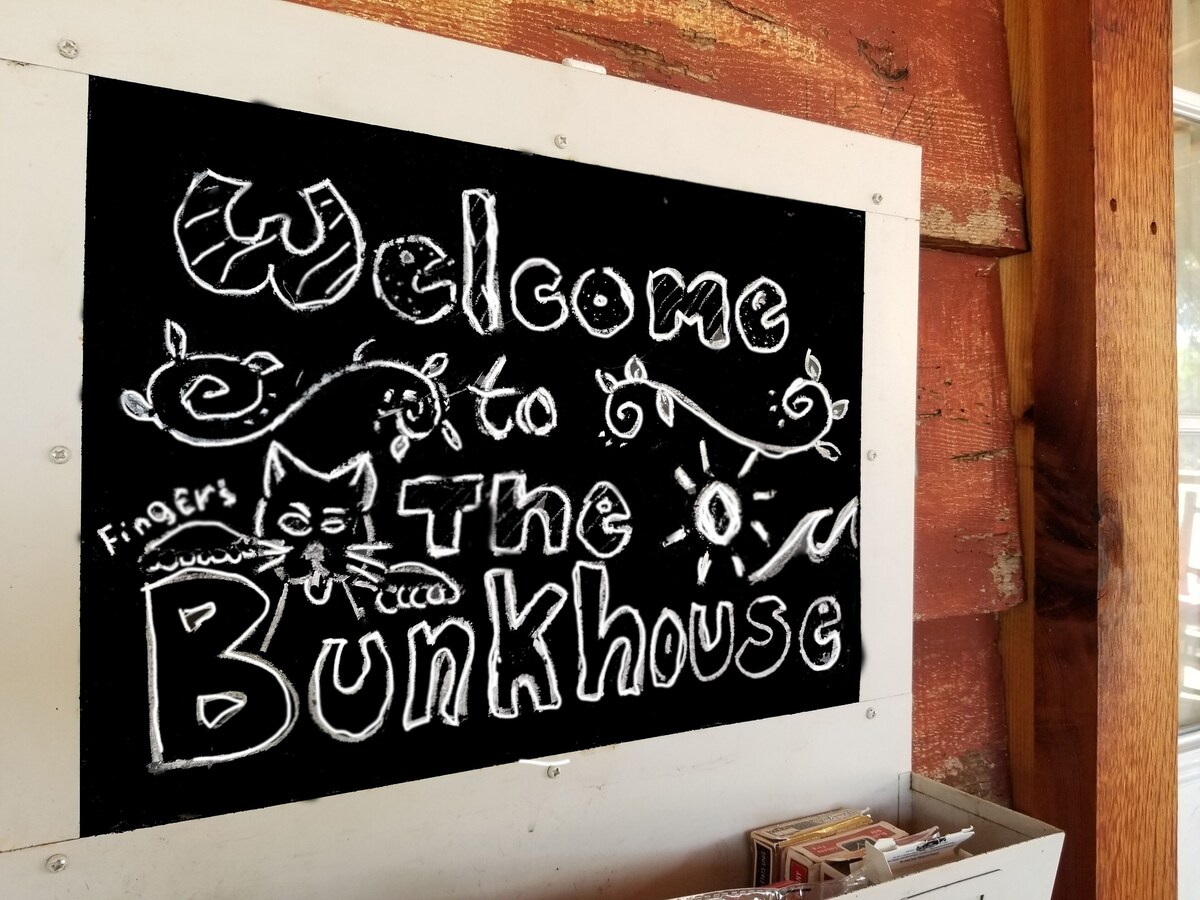 Welcome
to
Fingers
The
Bunkhouse